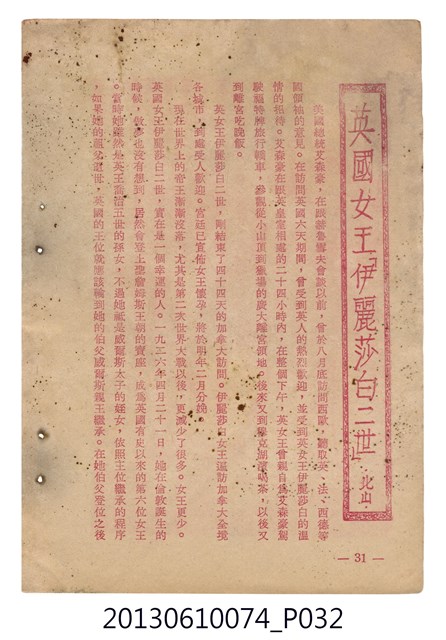 英國女王「伊麗莎白二世」
·北山·
美國總統艾森豪,在跟赫魯曉夫會談以前,曾於八月底訪問西歐,聽取英、法、西德等
國領袖的意見。在訪問英國六天期間,曾受到英人的熱烈歡迎,並受到英女王伊麗莎白的溫
情的招待。艾森豪在跟英皇室相處的二十四小時內,在整個下午,英女王曾親自為艾森豪駕
駛福特牌旅行轎車,參觀從小山頂到獵場的廣大離宮領地。後來又到翠亞湖濱喝茶,以後又
到離宮吃晚飯。
英女王伊麗莎白二世,剛結束了四十四天的加拿大訪問。伊麗莎白女王遍訪加拿大全境
各城市,到處受人歡迎。宮廷已宣佈女王懷孕,將於明年二月分娩。
現在世界上的帝王漸漸沒落,尤其是第二次世界大戰以後,更減少了很多。女王更少。
英國女王伊麗莎白二世,實在是一個幸運的人。一九二六年四月二十一日,她在倫敦誕生的
時候,做夢也沒有想到,居然會登上聖詹姆斯王朝的寶座,成為英國有史以來的第六位女王
。當時她雖然是英王喬治五世的孫女,不過她祇是威爾斯太子的姪女,依照王位繼承的程序
,如果她的祖父逝世,英國的王位就應該輪到她的伯父威爾斯親王繼承。在她伯父登位之後
— 31 —
20130610074_P032